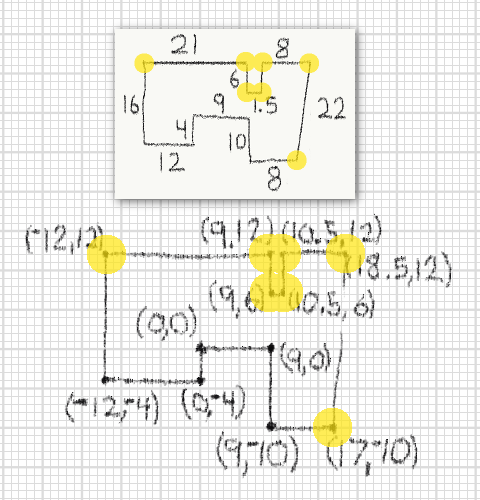 21 8
6
16 9 1.5 22
4 10
12
8
(-12,12) (9,12) (10.5,12)
(18.5,12)
(9,6) (10.5,6)
(0,0)
(9,0)
(-12,-4) (0,-4)
(9,-10) (17,-10)